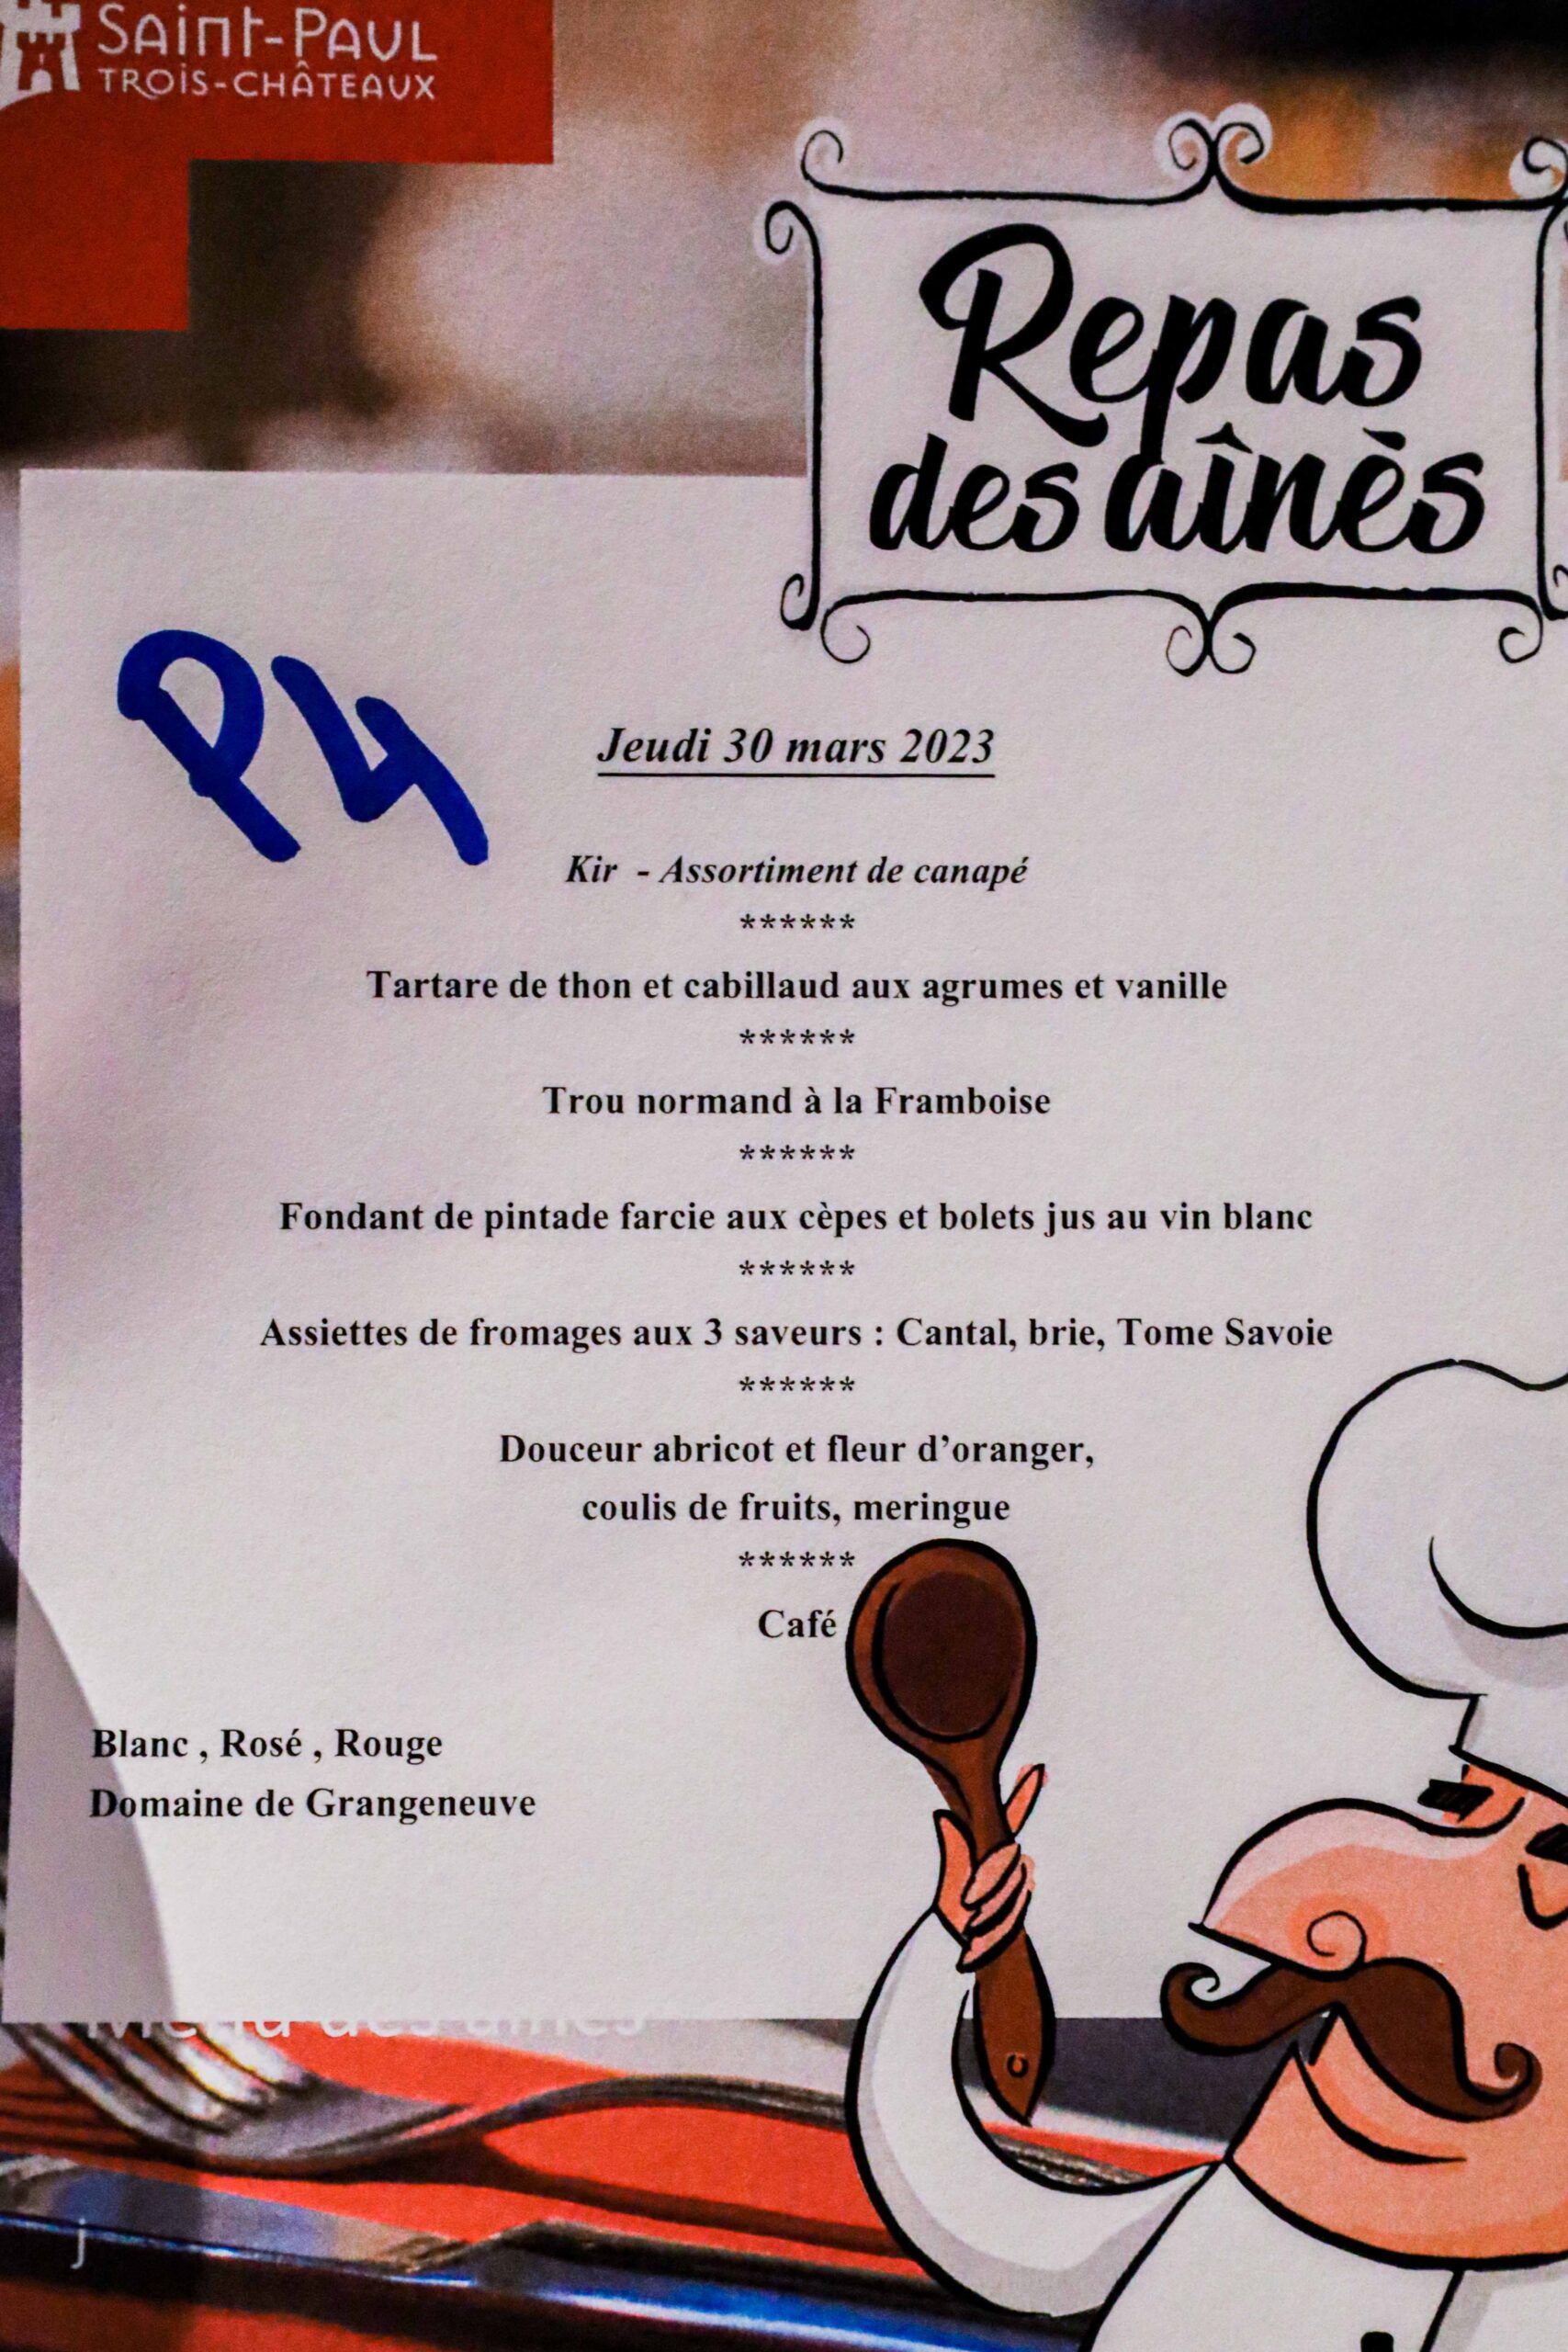 SAINT-PAUL
TROIS-CHÂTEAUX
Repas
des aînès
P4
Jeudi 30 mars 2023
Kir - Assortiment de canapé
******
Tartare de thon et cabillaud aux agrumes et vanille
******
Trou normand à la Framboise
******
Fondant de pintade farcie aux cèpes et bolets jus au vin blanc
******
Assiettes de fromages aux 3 saveurs : Cantal, brie, Tome Savoie
******
Douceur abricot et fleur d’oranger,
coulis de fruits, meringue
******
Café
Blanc , Rosé , Rouge
Domaine de Grangeneuve
j